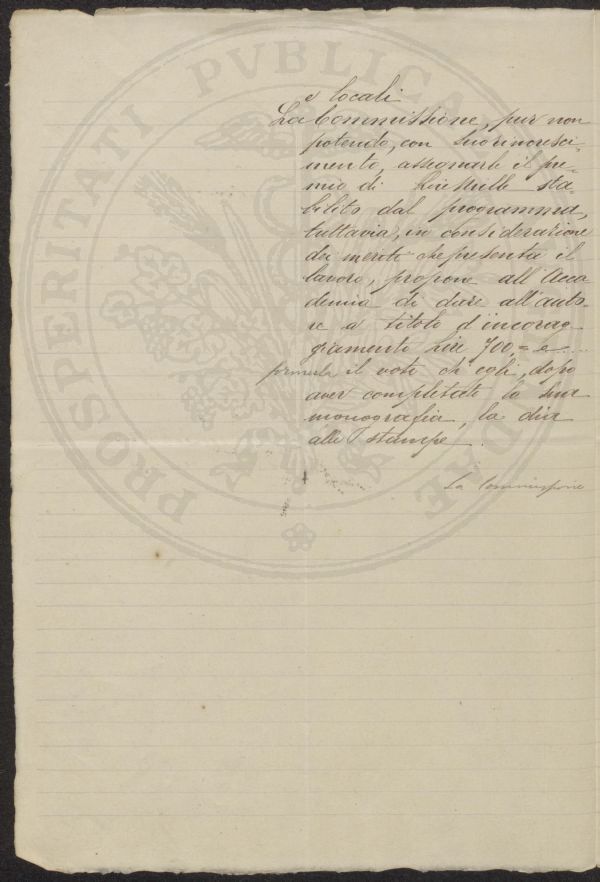 e locali
La Commissione, pur non
potendo, con suo rincresci-
mento, assegnarle il pre-
mio di Lire mille sta-
bilito dal programma,
tuttavia, in considerazione
dei meriti che presenta il
lavoro, propone all'Acca
demia di dare all'auto-
re a titolo d'incorag-
giamento Lire 700,= e ....
formula il voto ch'egli, dopo
aver completato la sua
monografia, la dia
alle stampe.
La Commissione
PROSPERITATI PVBLICAE